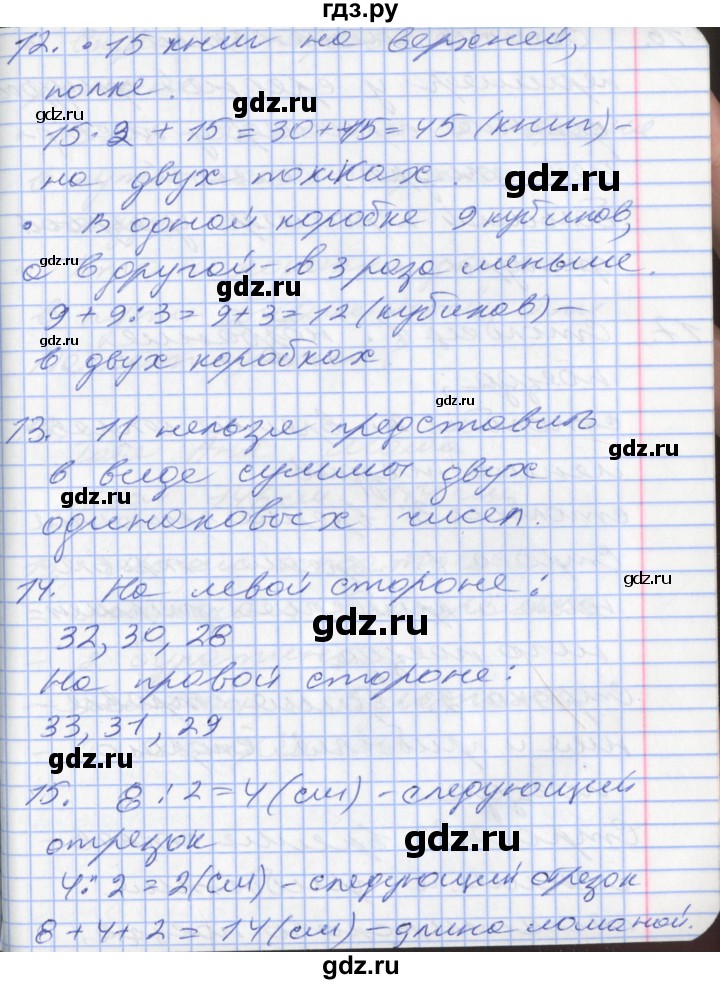 гдз.ру
12. • 15 книг на верхней,
полке.
gdz.ru
gdz.ru
15 · 2 + 15 = 30 + 15 = 45 (книг) -
gdz.ru
на двух полках.
gdz.ru
• В одной коробке 9 кубиков,
gdz.ru
а в другой - в 3 раза меньше.
gdz.ru
9 + 9 : 3 = 9 + 3 = 12 (кубиков) -
в двух коробках
gdz.ru
gdz.ru
13. 11 нельзя представить
gdz.ru
в виде суммы двух
gdz.ru
одинаковых чисел.
14. На левой стороне:
gdz.ru
gdz.ru
32, 30, 28
На правой стороне:
33, 31, 29
gdz.ru
15. 8 : 2 = 4 (см) - следующий
отрезок
gdz.ru
4 : 2 = 2 (см) - следующий отрезок
gdz.ru
8 + 4 + 2 = 14 (см) - длина ломаной.
gdz.ru